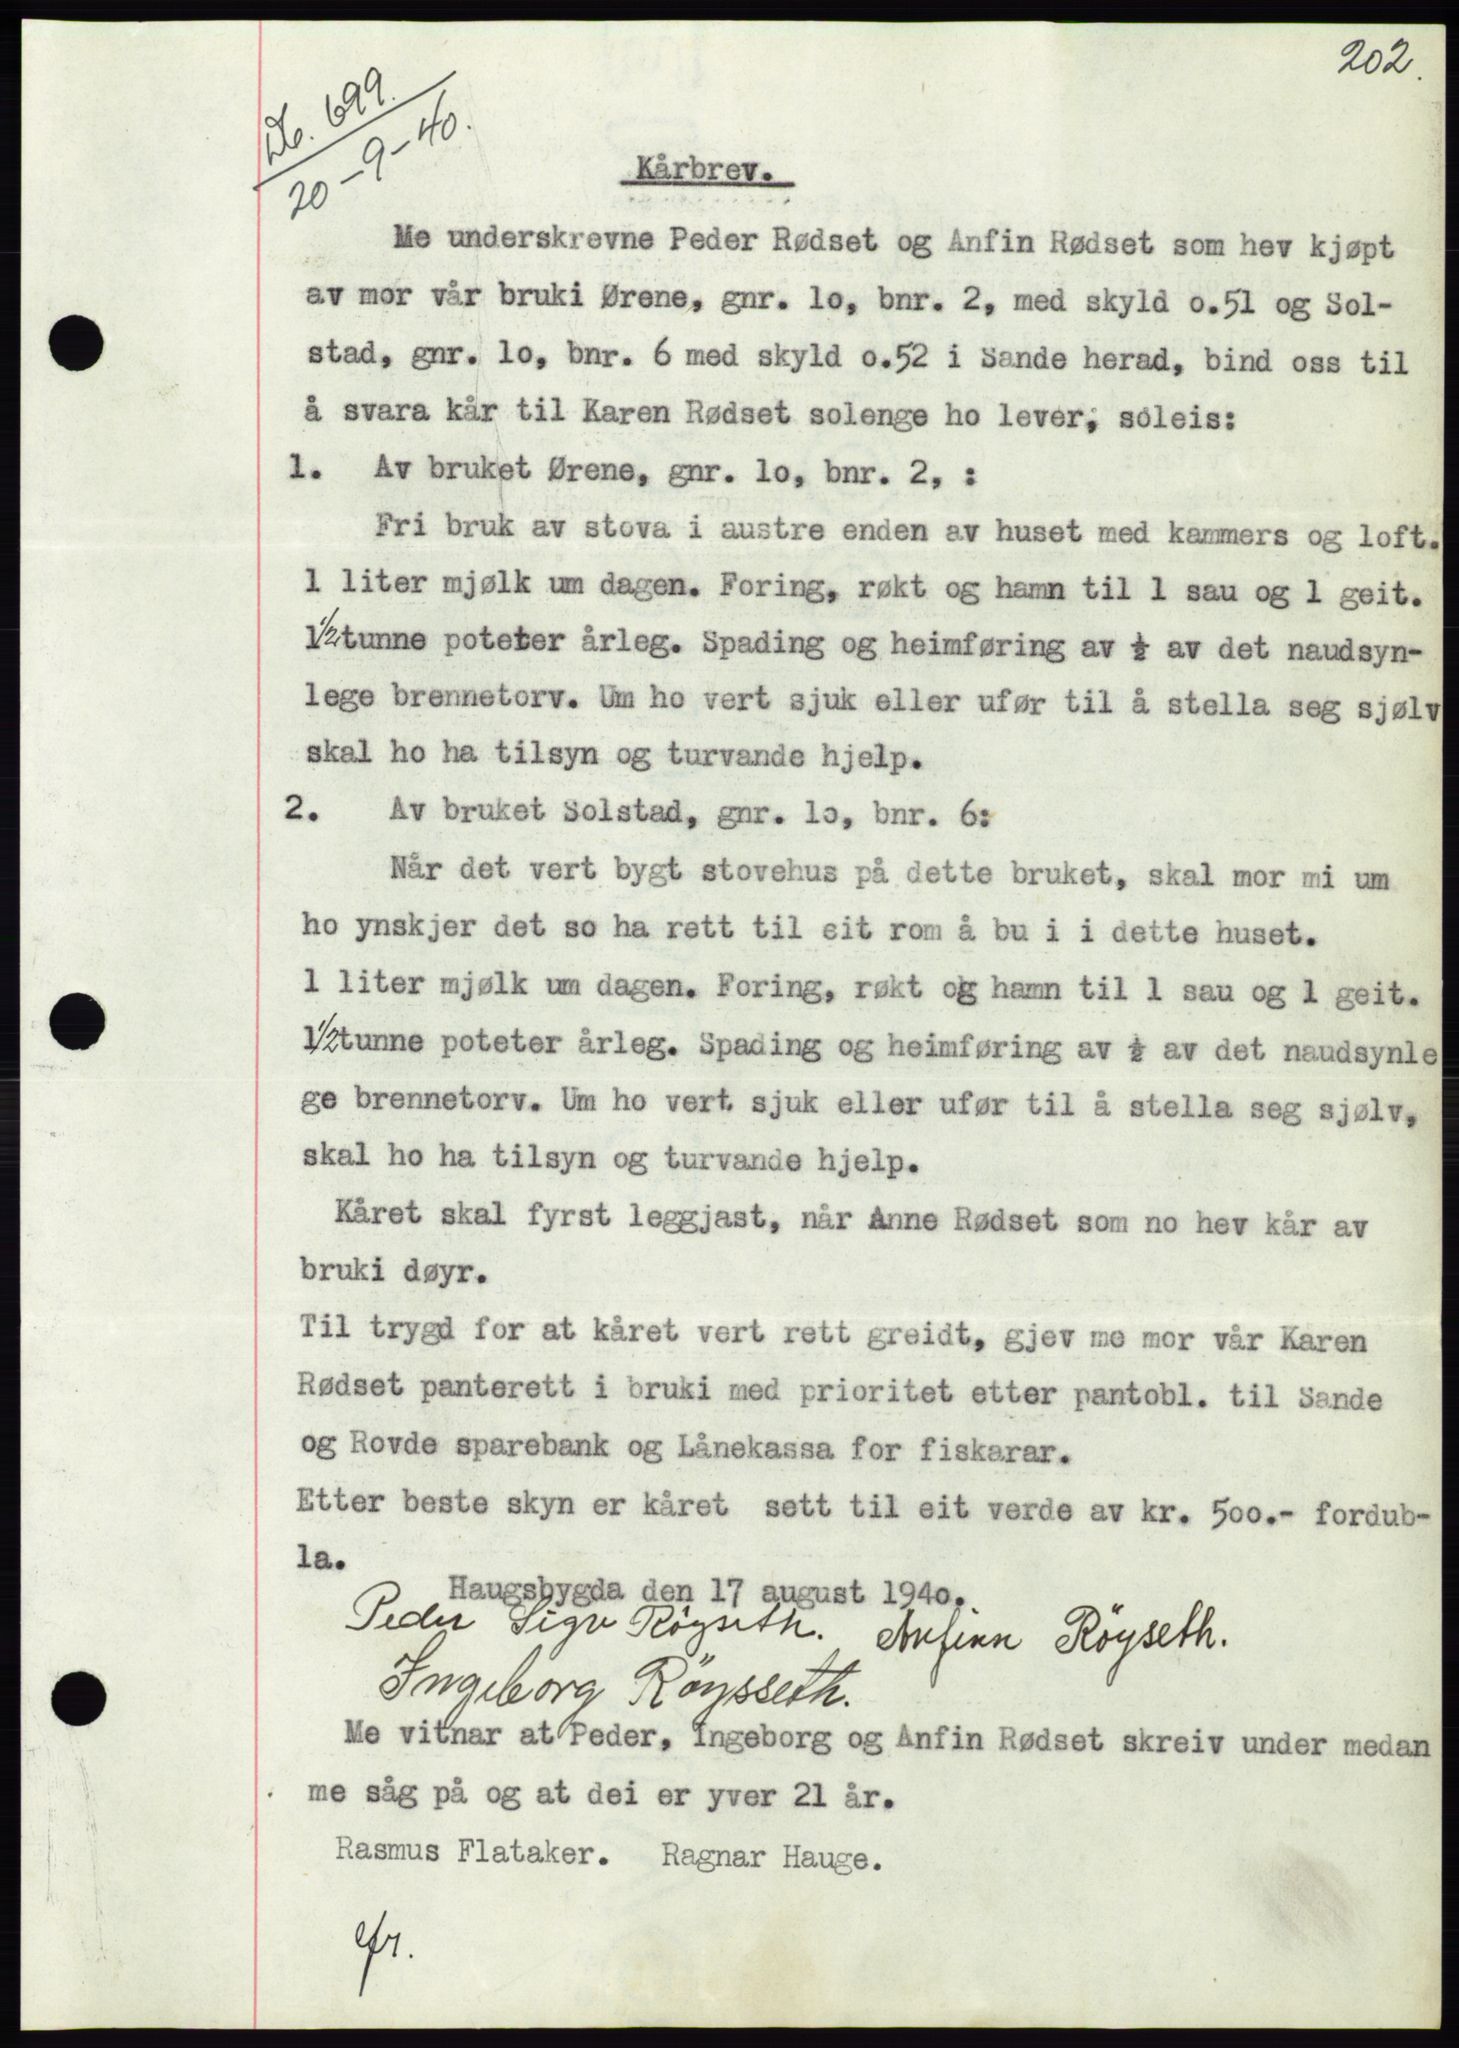 202.
No. 699.
20-9-40.
Kårbrev.
Me underskrevne Peder Rødset og Anfin Rødset som hev kjøpt
av mor vår bruki Ørene, gnr. lo, bnr. 2, med skyld o.51 og Sol-
stad, gnr. lo, bnr. 6 med skyld o.52 i Sande herad, bind oss til
å svara kår til Karen Rødset solenge ho lever, soleis:
1. Av bruket Ørene, gnr. lo, bnr. 2, :
Fri bruk av stova i austre enden av huset med kammers og loft.
1 liter mjølk um dagen. Foring, røkt og hamn til 1 sau og 1 geit.
1 1/2 tunne poteter årleg. Spading og heimføring av ½ av det naudsyn-
lege brennetorv. Um ho vert sjuk eller ufør til å stella seg sjølv
skal ho ha tilsyn og turvande hjelp.
2. Av bruket Solstad, gnr. lo, bnr. 6:
Når det vert bygt stovehus på dette bruket, skal mor mi um
ho ynskjer det so ha rett til eit rom å bu i i dette huset.
1 liter mjølk um dagen. Foring, røkt og hamn til 1 sau og 1 geit.
1 1/2 tunne poteter årleg. Spading og heimføring av ½ av det naudsynle
ge brennetorv. Um ho vert sjuk eller ufør til å stella seg sjølv,
skal ho ha tilsyn og turvande hjelp.
Kåret skal fyrst leggjast, når Anne Rødset som no hev kår av
bruki døyr.
Til trygd for at kåret vert rett greidt, gjev me mor vår Karen
Rødset panterett i bruki med prioritet etter pantobl. til Sande
og Rovde sparebank og Lånekassa for fiskarar.
Etter beste skyn er kåret sett til eit verde av kr. 5oo.- fordub-
la.
Haugsbygda den 17 august 194o.
Peder Sigv Röyseth. Anfinn Röyseth.
Ingeborg Röysseth.
Me vitnar at Peder, Ingeborg og Anfin Rødset skreiv under medan
me såg på og at dei er yver 21 år.
Rasmus Flataker. Ragnar Hauge.